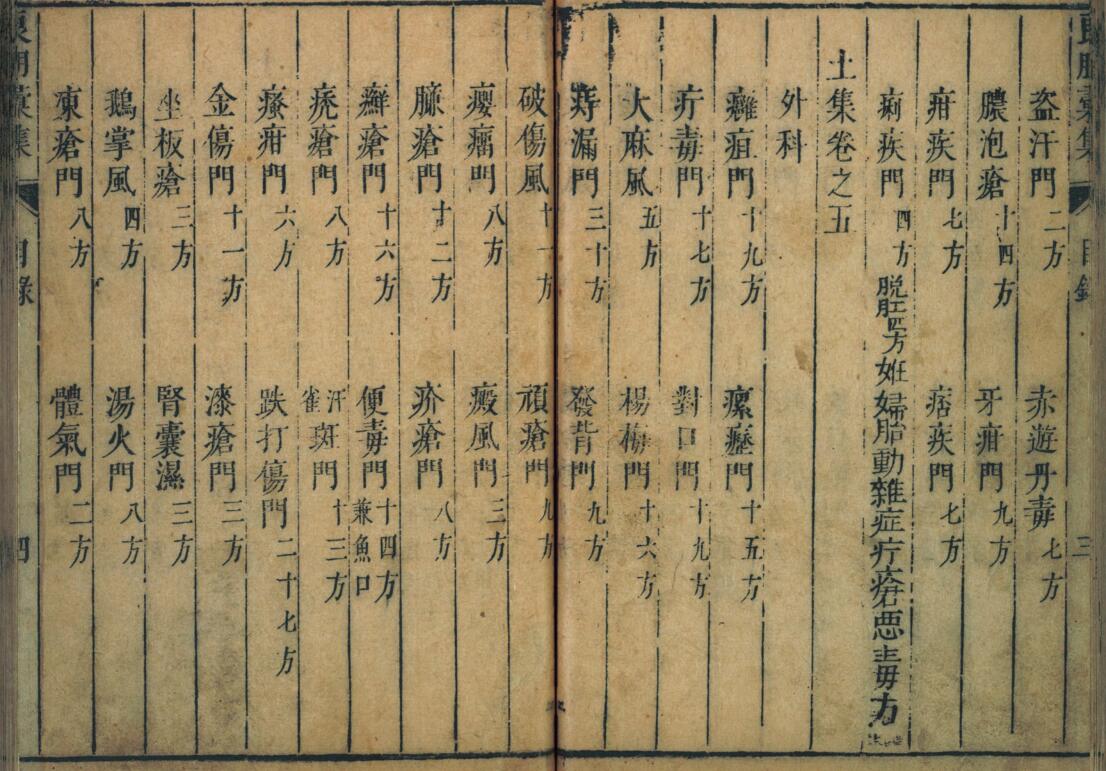 盜汗門 二方 赤遊丹毒 七方
膿泡瘡 十四方 牙疳門 九方
疳疾門 七方 痞疾門 七方
痢疾門 四方 脫肛四方 姙婦胎動雜症疔瘡惡毒方
土集卷之五
外科
癰疽門 十九方 瘰癧門 十五方
疔毒門 十七方 對口門 十九方
大麻風 五方 楊梅門 十六方
痔漏門 三十方 發背門 九方
破傷風 十一方 頑瘡門 九方
癭瘤門 八方 癜風門 三方
臁瘡門 十二方 疥瘡門 八方
癬瘡門 十六方 便毒門 十四方 兼魚口
疣瘡門 八方 汗雀斑門 十三方
瘙疳門 六方 跌打傷門 二十七方
金傷門 十一方 漆瘡門 三方
坐板瘡 三方 腎囊濕 三方
鵝掌風 四方 湯火門 八方
凍瘡門 八方 體氣門 二方
目錄 四